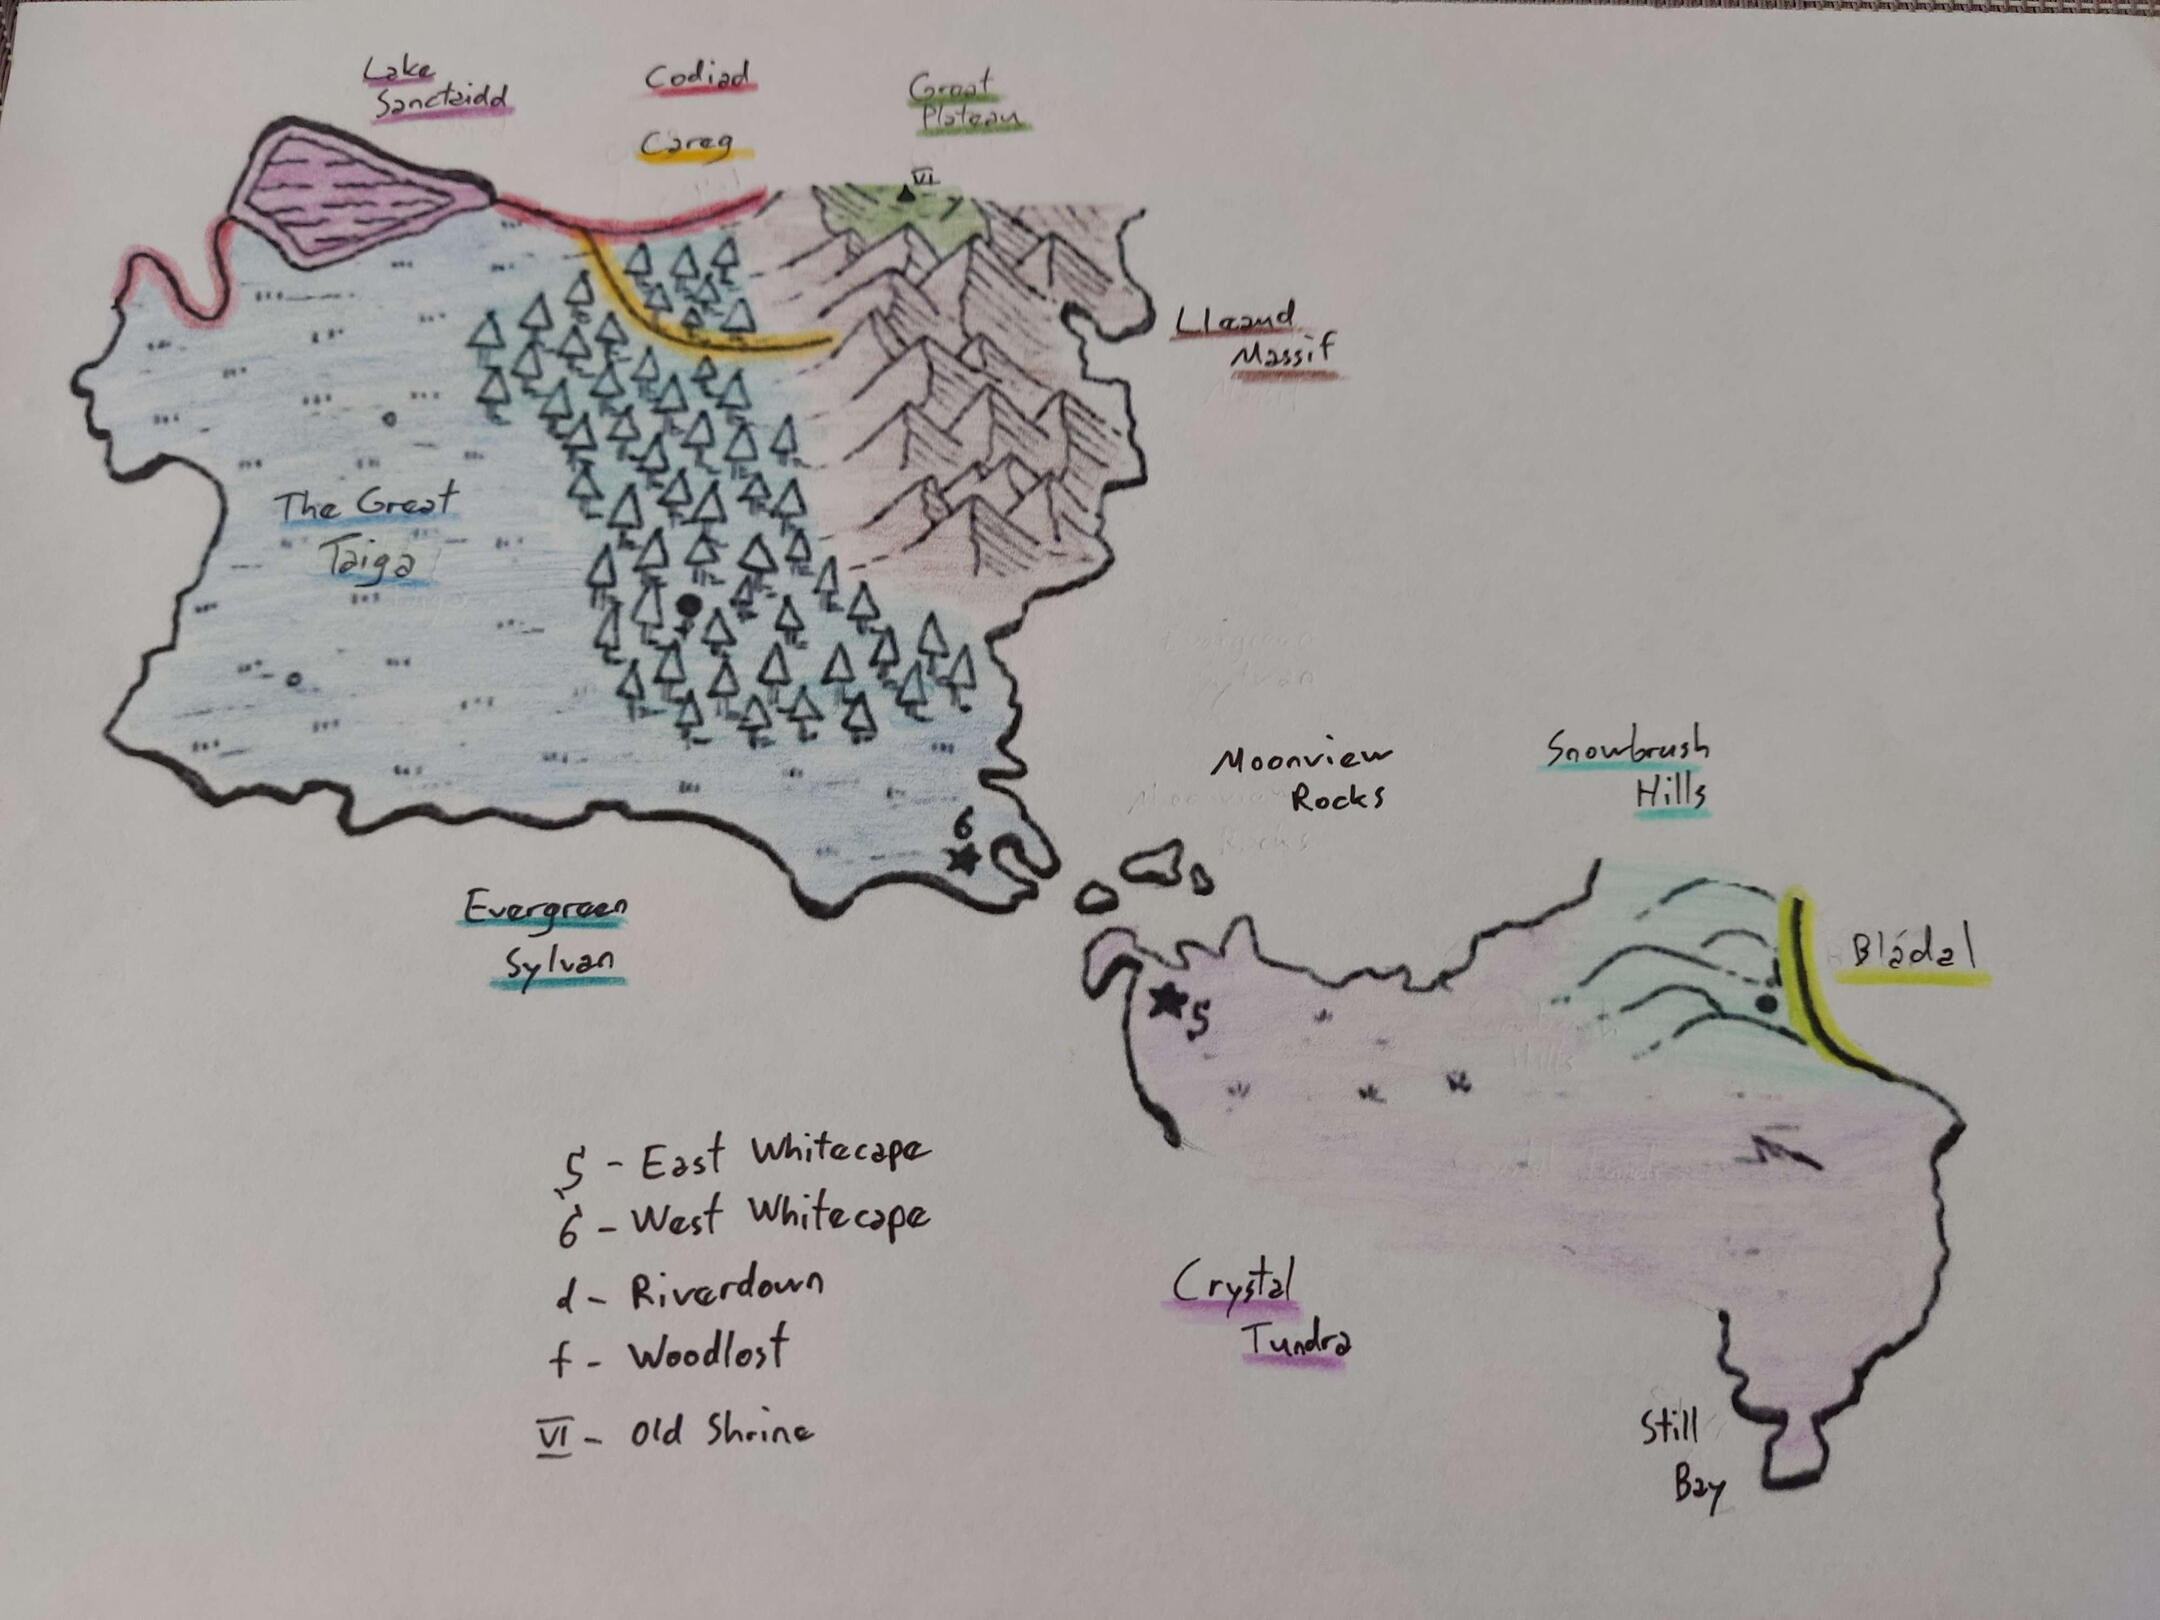 Lake
Sancteidd
Codiad
Careg
Great
Plateau
VI
Llaand
Massif
The Great
Taiga
Moonview
Rocks
Snowbrush
Hills
6
Evergreen
Sylvan
Bládal
5
5 - East Whitecape
6 - West Whitecape
d - Riverdown
f - Woodlost
VI - Old Shrine
Crystal
Tundra
Still
Bay